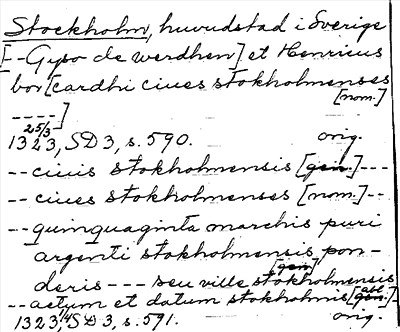 Stockholm, huvudstad i Sverige
[--Gyso de werdhen] et Henricus
bor[cardhi ciues stokholmenses
[nom.]
----]
25/3
1323, SD3, s. 590. orig.
--ciuis stokholmensis [gen.]---
--ciues stokholmenses [nom.]--
--quinquaginta marchis puri
argenti stokholmensis pon-
deris --- seu ville stokholmensis
[gen]
--actum et datum stokholmis [abl.]
1323, SD3, s. 591. orig.